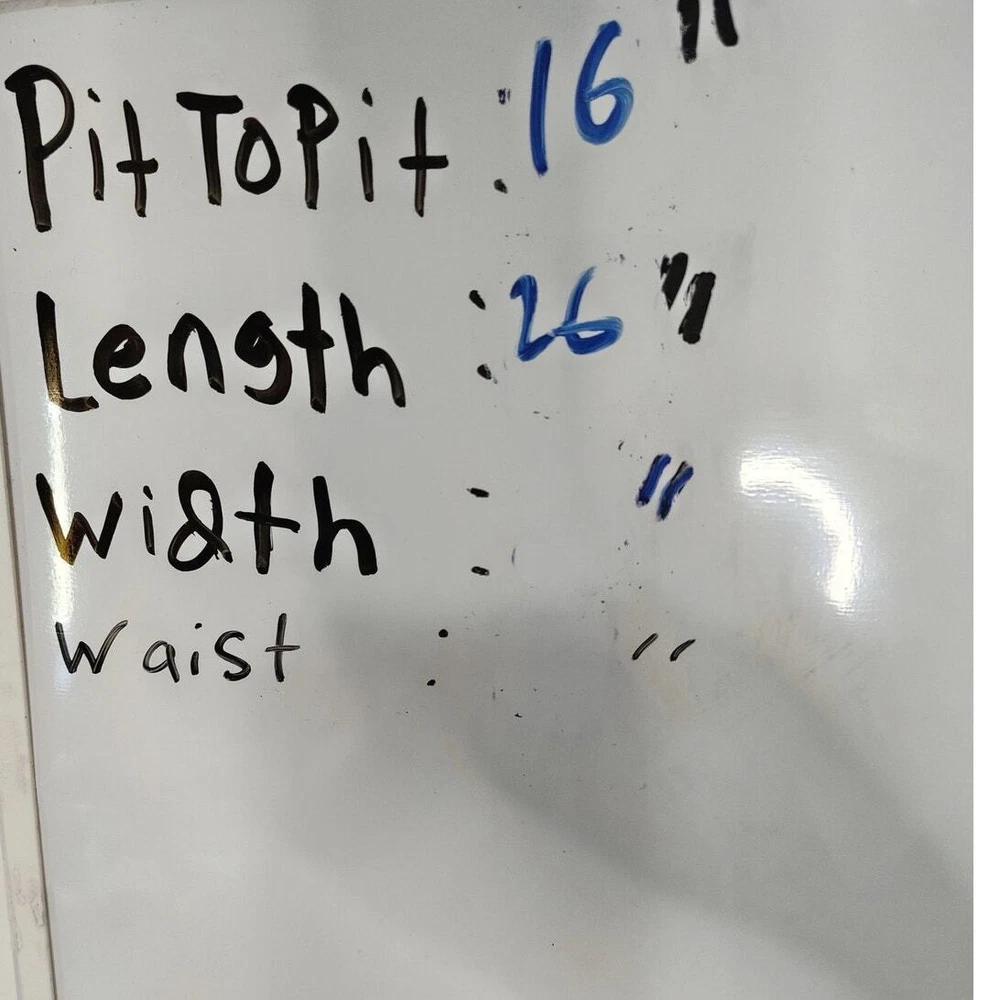 Pit To Pit : 16 "
Length : 26 "
Width : "
Waist : "